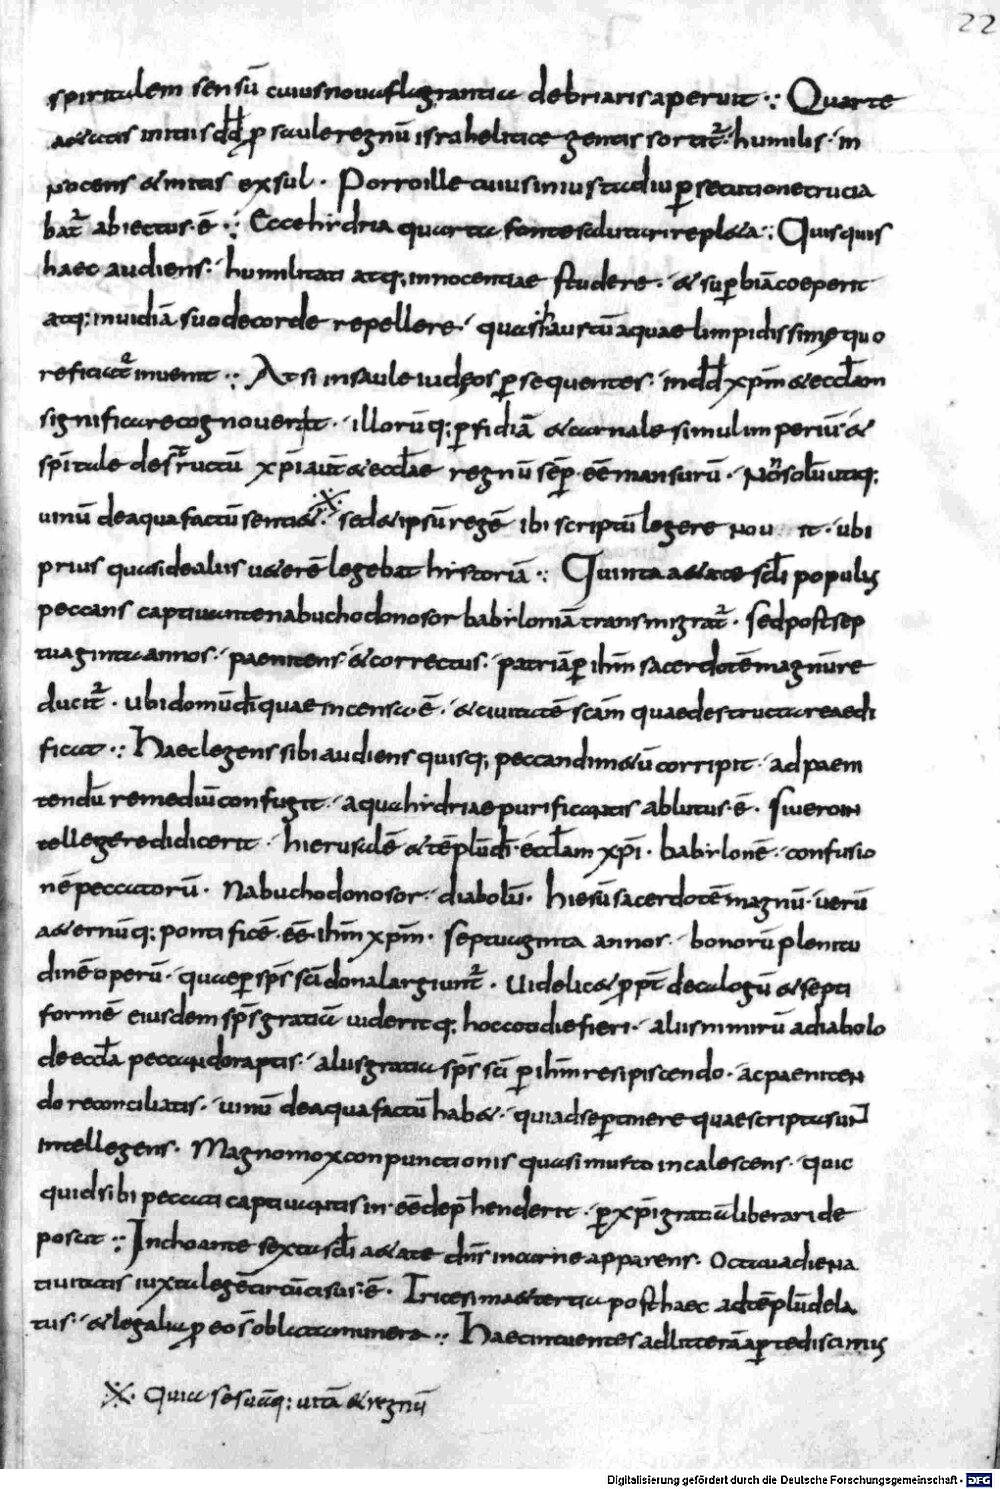 22
spiritalem sensū cuius nova flagrantia debriaris aperuit ·: Quarte
aetatis initiis dd̄ p̱ saule regnū israheliticae gentis sortit᷑ · humilis · in
nocens & mitis exsul · Porro ille cuius iniusta diu p̱secutione crucia
bat᷑ abiectus · ē ·: Ecce hidria quarta fonte salutari repl&a ·: Quisquis
haec audiens · humilitati atq; innocentiae studere · & sup̱biā coeperit
atq; invidiā suo de corde repellere · quasi haustū aquae limpidissimę quo
reficiat᷑ invenit ·: At si in saule iudęos p̱sequentes · in dd̄ xp̄m & eccl̄am
significare cognoverit · illorūq; p̱fidiā & carnale simul imperiū &
sp̄itale destructū xp̄i aut̄ & eccl̄ae regnū sēp̱ · eē mansurū · Non solū utiq;
vinū de aqua factū senti& · sed & ipsū regē ibi scriptū legere nov it · ubi
prius quasi de aliis v&erē legebat historiā ·: Quinta a&ate sc̄di populus
peccans captivante nabuchodonosor babiloniā transmigrat᷑ · sed post sep
tuaginta annos · paenitens & correctus · patriā p̱ ih̄m sacerdotē magnū re
ducit᷑ · ubi domū dī quae incensa · ē · & civitatē sc̄am quae destructa reaedi
ficat ·: Haec legens sibi audiens quisq; peccandi m&ū corripit · ad paeni
tendū remediū confugit · aqua hidriae purificantis ablutus · ē · Si vero in
tellegere didicerit · hierusalē & tēplū dī · eccl̄am xp̄i · babilonē · confusio
nē peccatorū · Nabuchodonosor · diabolū · hiesū sacerdotē magnū · verū
a&ernūq; pontificē · eē · ih̄m xp̄m · septuaginta annos · bonorū plenitu
dinē operū · quae p̱ sp̄s sc̄i dona largiunt᷑ · Videlic& p̱pt̄ decalogū & septi
formē eiusdem sp̄s gratiā videritq; hoc cotidie fieri · alius nimirū a diabolo
de eccl̄a peccando raptis · alius gratia sp̄s sc̄i p̱ ih̄m resipiscendo · ac paeniten
do reconciliatis · vinū de aqua factū hab& · quia ad se p̱tinere quae scripta sunt
intellegens · Magno mox conpunctionis quasi musto incalescens · quic
quid sibi peccati captivantis in · eē dep̄henderit · p̱ xp̄i gratiā liberari de
poscit ·: Inchoante sexta sc̄di a&ate dn̄s in carne apparens · Octava die na
tivitatis iuxta legē circūcisus · ē · Tricesima & tertia post haec ad tēplū dela
tus · & legalia p̱ eo s̄ oblata munera ·: Haec intuentes ad litterā ap̱te discimus
·X· Quia se suāq; vitā & regnū
Digitalisierung gefördert durch die Deutsche Forschungsgemeinschaft - DFG